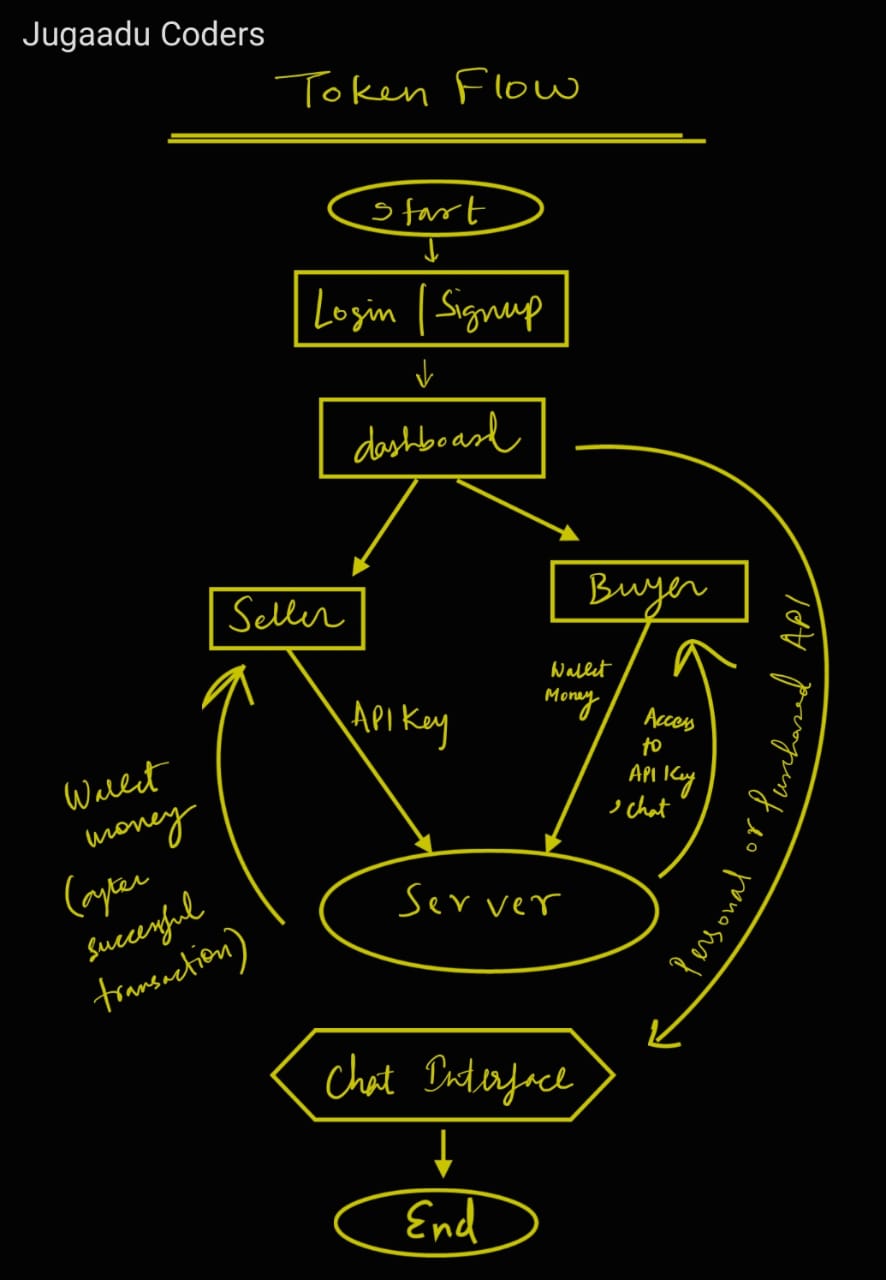 Jugaadu Coders
Token Flow
Start
Login | Signup
dashboard
Seller
Buyer
API Key
Wallet
Money
Access
to
API Key
, chat
Personal or Purchased API
Wallet
money
(after
successful
transaction)
Server
Chat Interface
End